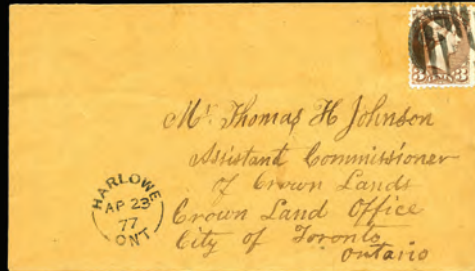 3 CENTS 3
Mr. Thomas H Johnson
Assistant Commissioner
of Crown Lands
Crown Land Office
City of Toronto
Ontario
HARLOWE
AP 23
77
ONT